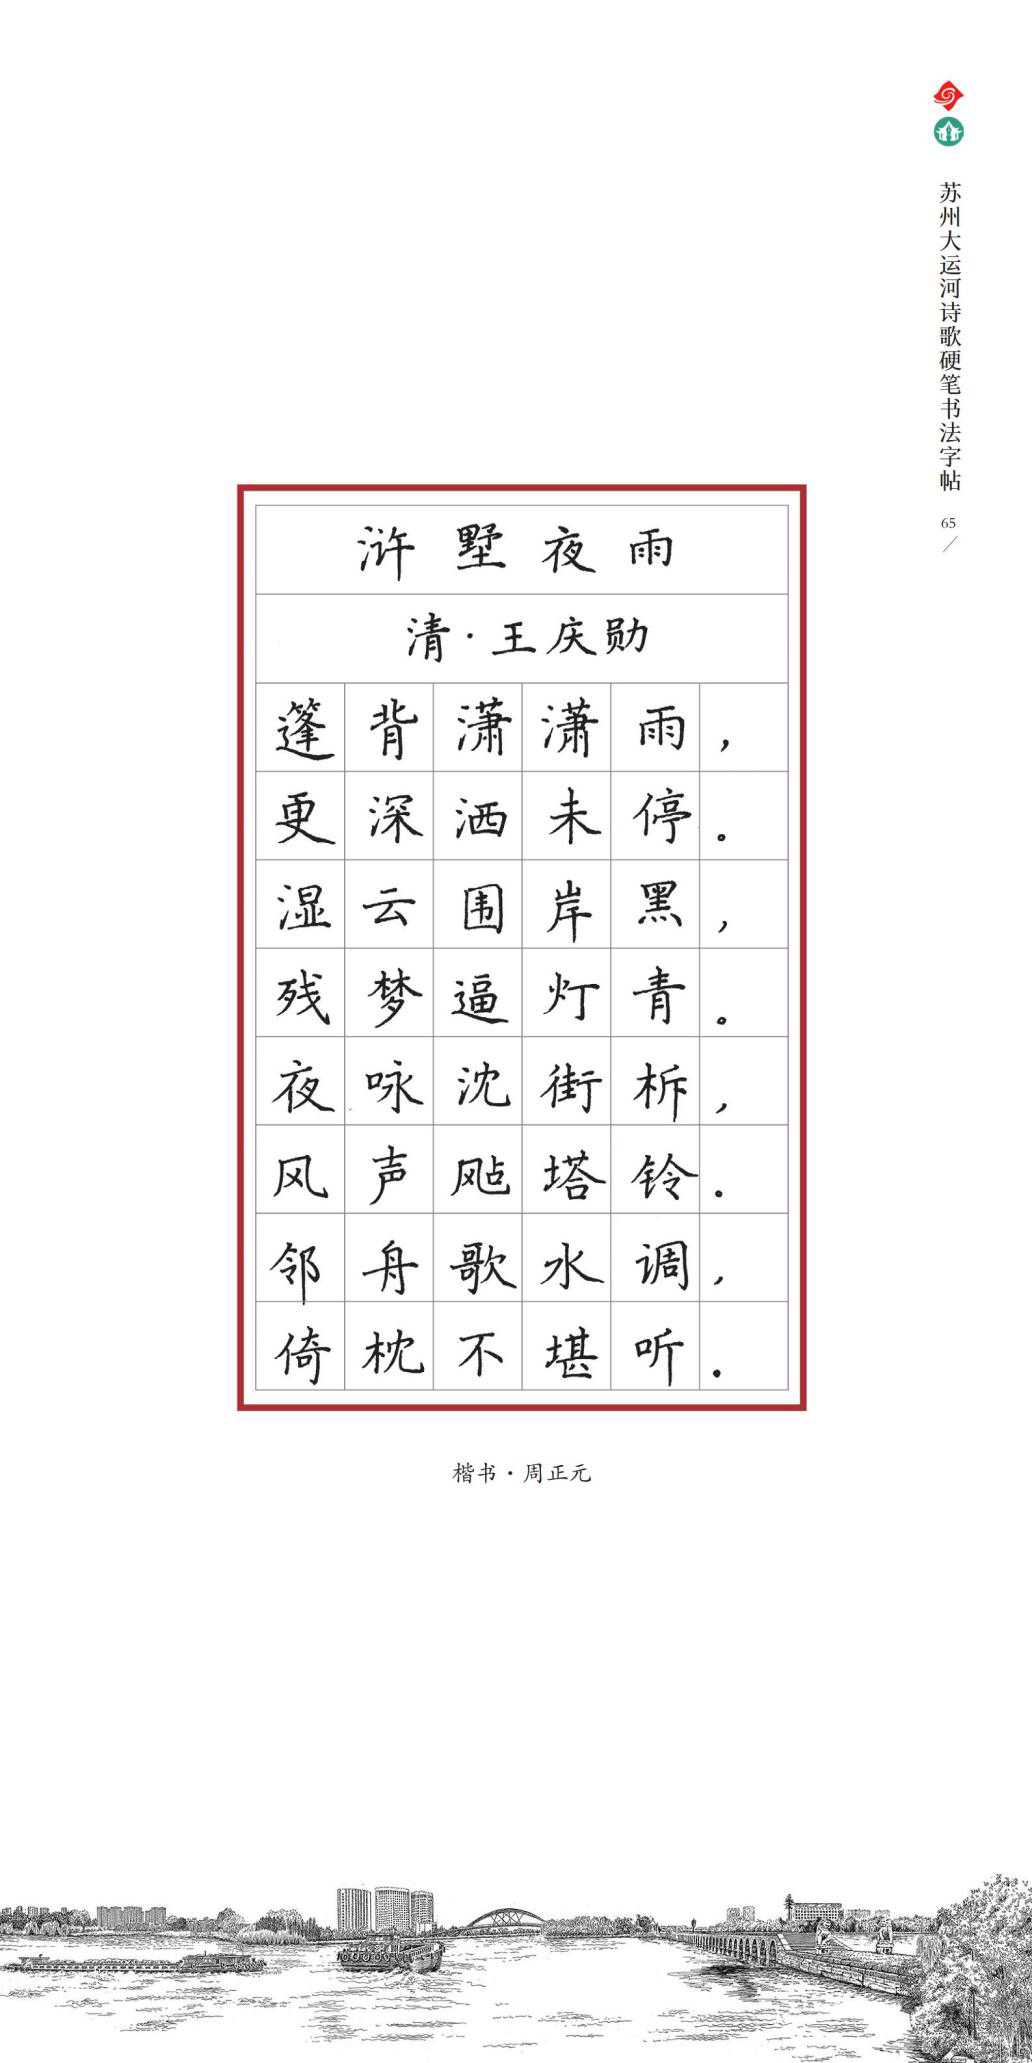 苏州大运河诗歌硬笔书法字帖
65
浒墅夜雨
清·王庆勋
篷背潇潇雨，
更深洒未停。
湿云围岸黑，
残梦逼灯青。
夜咏沈街柝，
风声飐塔铃.
邻舟歌水调，
倚枕不堪听.
楷书·周正元